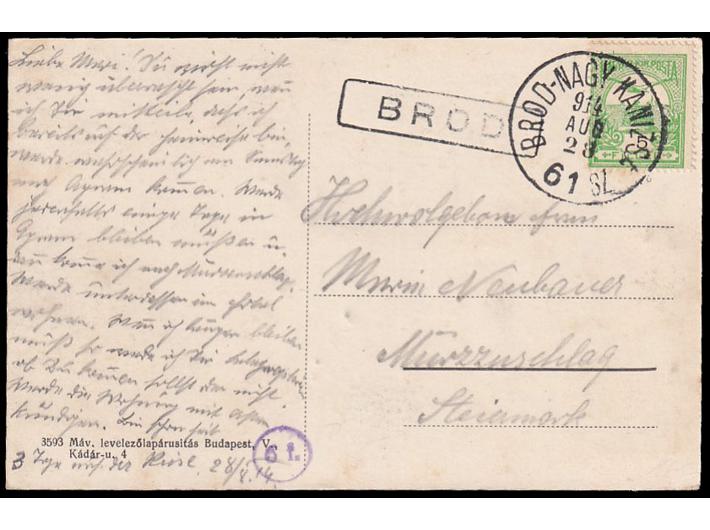 Liebe Mari! Du wirst nicht
wenig überrascht sein, wenn
ich Dir mitteile, dass ich
bereits auf der Heimreise bin,
werde wahrscheinlich am Samstag
nach Agram kommen. Werde
jedenfalls einige Tage in
Agram bleiben müssen u.
dann komme ich nach Mürzzuschlag.
Werde unterdessen im Hotel
wohnen. Wenn ich länger bleiben
muss so werde ich Dir
ob Du kommen sollst oder nicht.
Werde die Wohnung mit
kündigen.
3593 Máv. levelezőlapárusitás Budapest, V.,
Kádár-u. 4
3 Tage nach der 28/8. 14.
6 1.
BROD
BROD-NAGY KANIZSA
914
AUG
28
61 SZ.
Hochwolgeboren Frau
Marie Neubauer
Mürzzuschlag
Steiermark